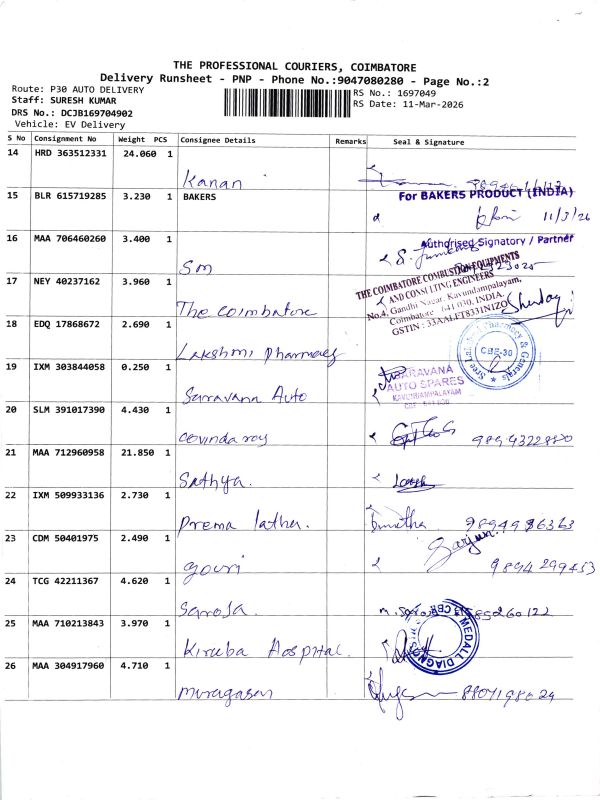 THE PROFESSIONAL COURIERS, COIMBATORE
Delivery Runsheet - PNP - Phone No.:9047080280 - Page No.:2
Route: P30 AUTO DELIVERY
Staff: SURESH KUMAR
DRS No.: DCJB169704902
Vehicle: EV Delivery
RS No.: 1697049
RS Date: 11-Mar-2026
S No Consignment No Weight PCS Consignee Details Remarks Seal & Signature
14 HRD 363512331 24.060 1
Kanan
15 BLR 615719285 3.230 1 BAKERS
For BAKERS PRODUCT (INDIA)
11/3/26
Authorised Signatory / Partner
16 MAA 706460260 3.400 1
Sm
17 NEY 40237162 3.960 1
The coimbatore
THE COIMBATORE COMBUSTION EQUIPMENTS
AND CONSULTING ENGINEERS
No.4, Gandhi Nagar, Kavundampalayam,
Coimbatore - 641 030, INDIA.
GSTIN : 33AALFT8331N1ZO
18 EDQ 17868672 2.690 1
Lakshmi Pharmacy
Sree Lakshmi Pharmacy & Generals
CBE-30
19 IXM 303844058 0.250 1
Saravana Auto
SARAVANA
AUTO SPARES
KAVUNDAMPALAYAM
20 SLM 391017390 4.430 1
Govinda roy
21 MAA 712960958 21.850 1
Sathya.
22 IXM 509933136 2.730 1
Prema latha.
23 CDM 50401975 2.490 1
gouri
9894299453
24 TCG 42211367 4.620 1
Saroja.
25 MAA 710213843 3.970 1
Kiruba Hospital.
MEDALL DIAGNOSTICS
26 MAA 304917960 4.710 1
murugasan